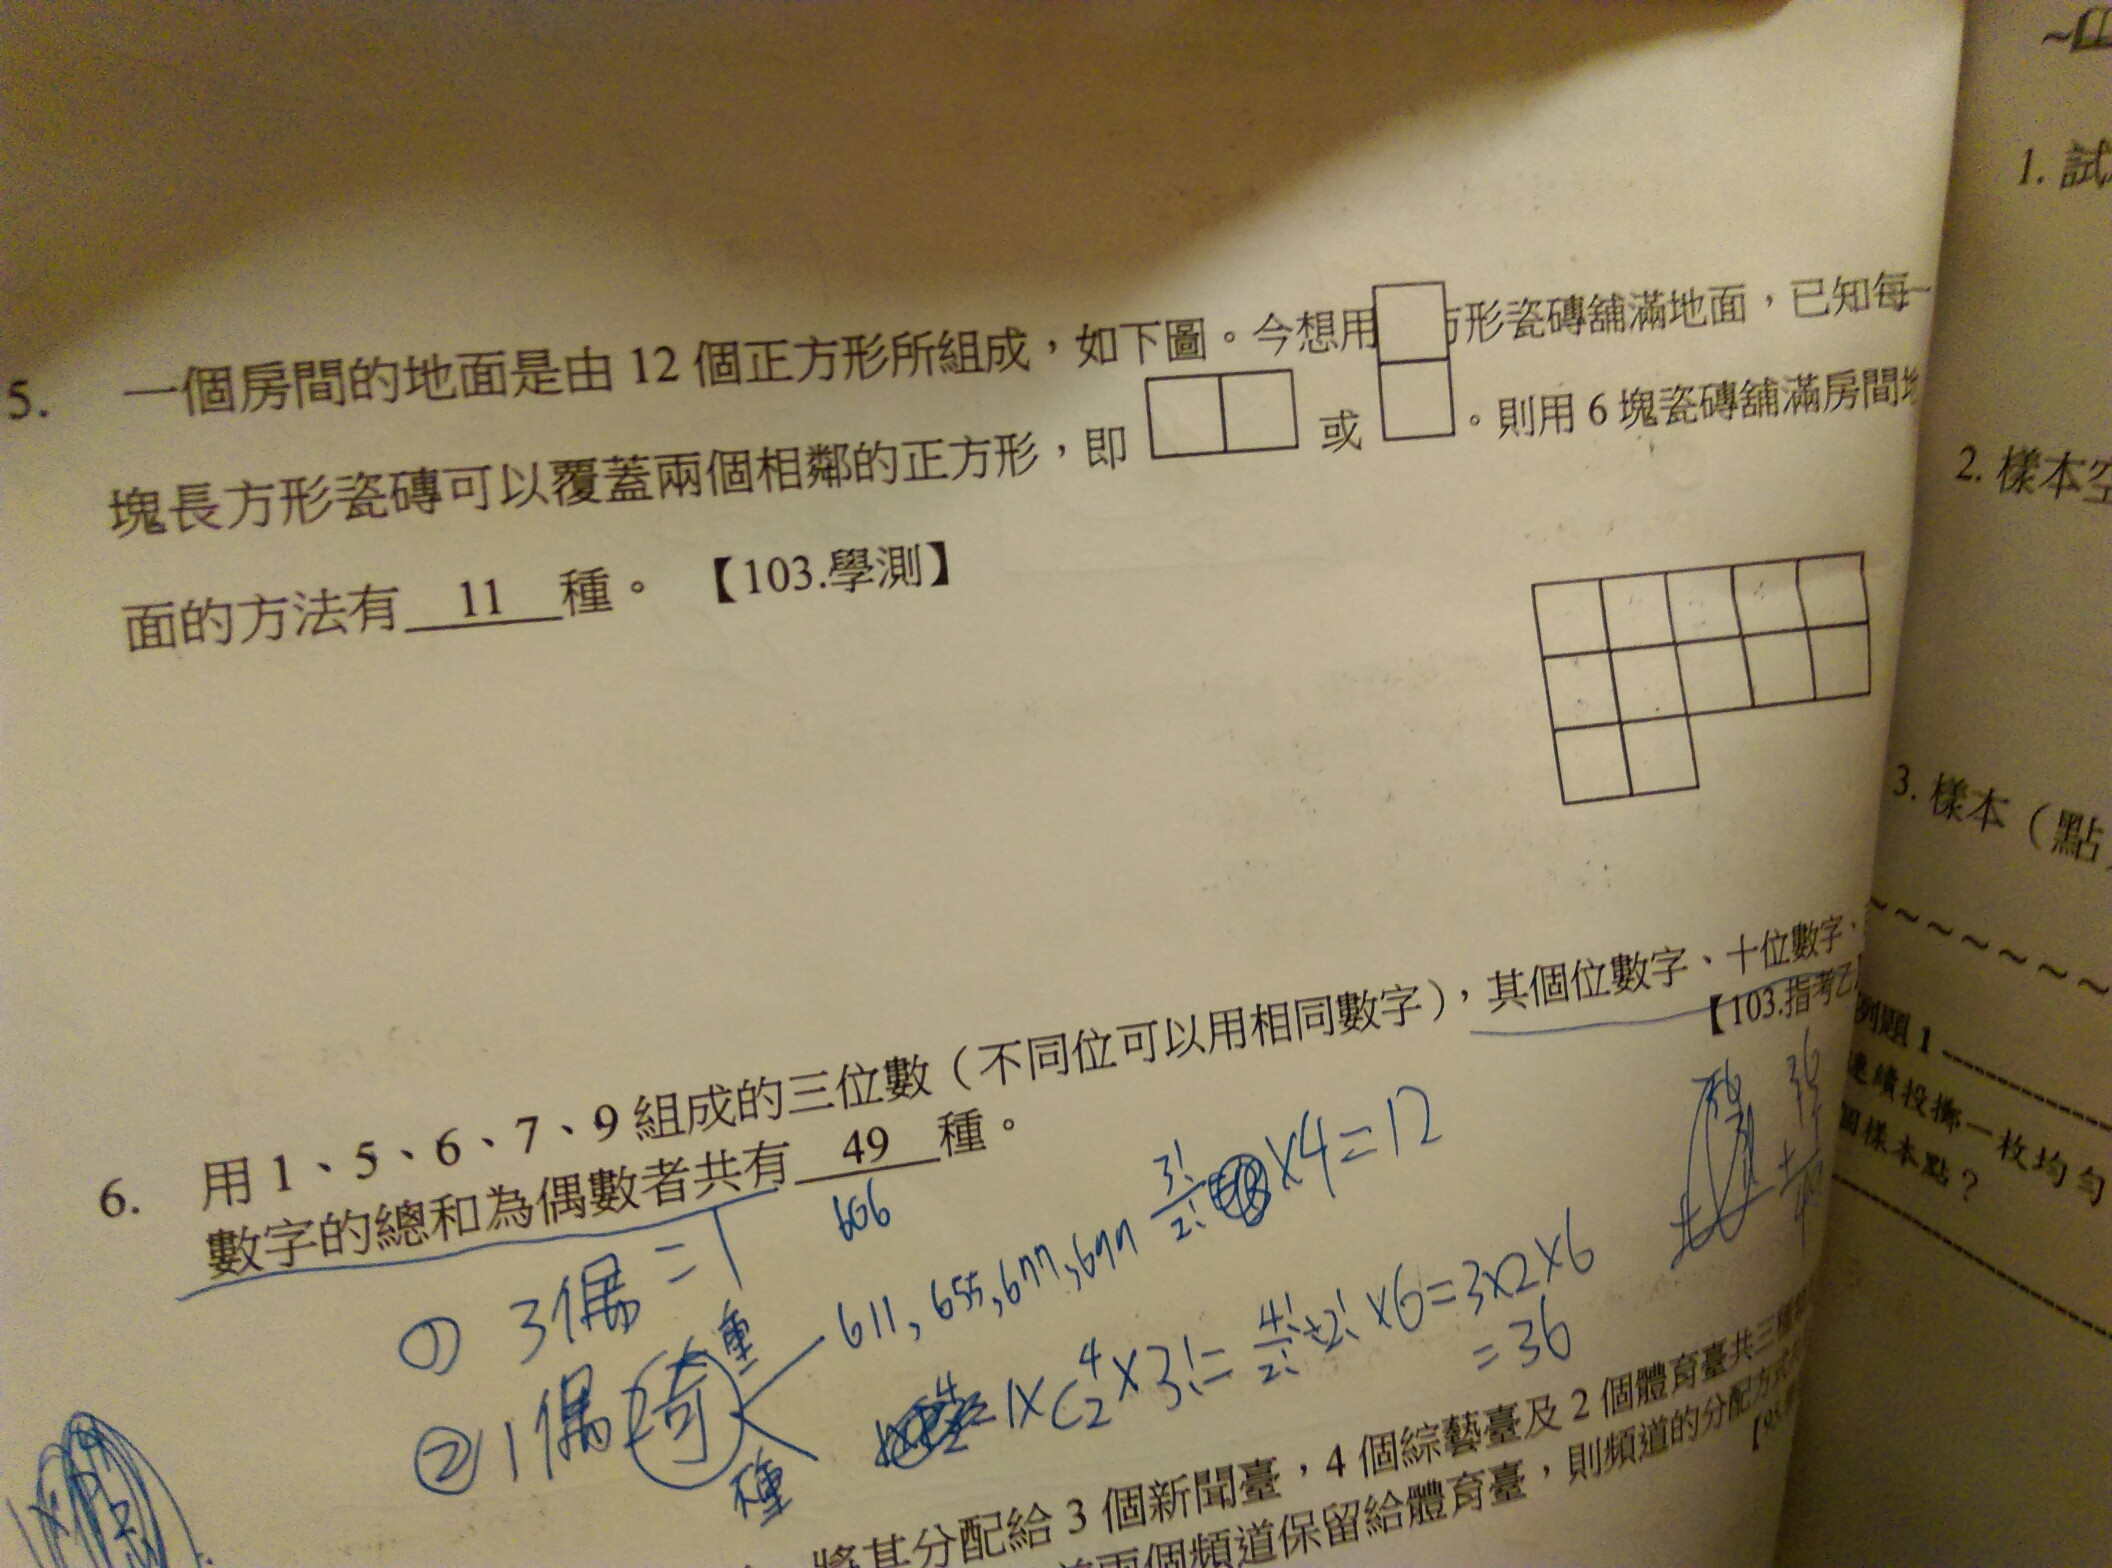 5. 一個房間的地面是由 12 個正方形所組成，如下圖。今想用方形瓷磚舖滿地面，已知每一
塊長方形瓷磚可以覆蓋兩個相鄰的正方形，即 或 。則用 6 塊瓷磚舖滿房間地
面的方法有 11 種。 【103.學測】
6. 用 1、5、6、7、9 組成的三位數（不同位可以用相同數字），其個位數字、十位數字、
【103.指考乙】
數字的總和為偶數者共有 49 種。
606
① 3偶 = 1
② 1偶 2奇
重 611, 655, 677, 699 3!/2! ×4=12
種 1×C⁴₂×3!= 4!/2!÷2! ×6=3×2×6
=36
36
將其分配給 3 個新聞臺，4 個綜藝臺及 2 個體育臺共三種
兩個頻道保留給體育臺，則頻道的分配方式
1. 試
2. 樣本空
3. 樣本（點
例題 1
連續投擲一枚均勻
個樣本點？